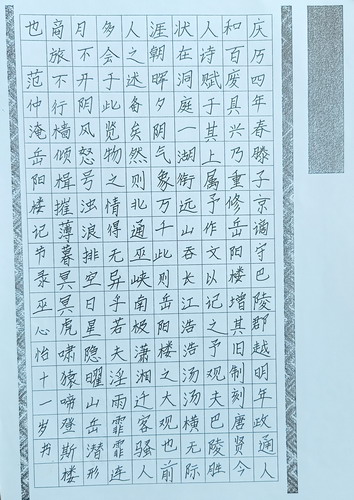 庆历四年春滕子京谪守巴陵郡越明年政通人
和百废具兴乃重修岳阳楼增其旧制刻唐贤今
人诗赋于其上属予作文以记之予观夫巴陵胜
状在洞庭一湖衔远山吞长江浩浩汤汤横无际
涯朝晖夕阴气象万千此则岳阳楼之大观也前
人之述备矣然则北通巫峡南极潇湘迁客骚人
多会于此览物之情得无异乎若夫淫雨霏霏连
月不开阴风怒号浊浪排空日星隐曜山岳潜形
商旅不行樯倾楫摧薄暮冥冥虎啸猿啼登斯楼
也 范仲淹岳阳楼记节录巫心怡十一岁书